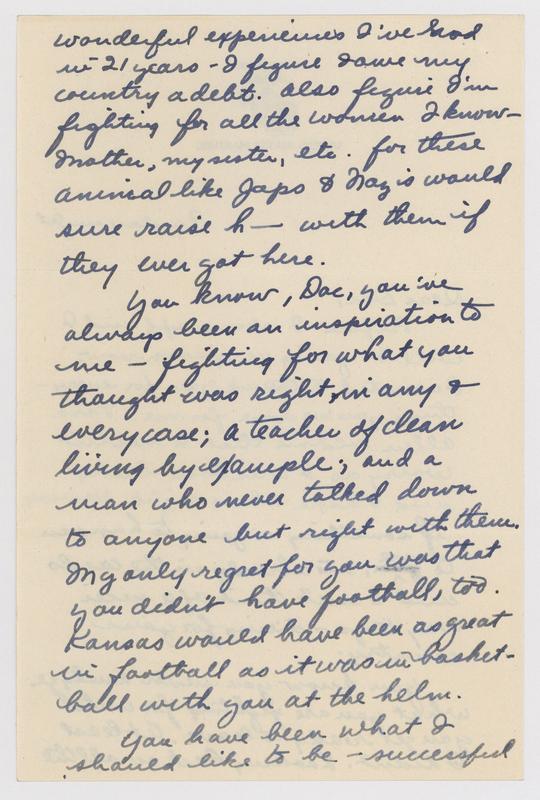 wonderful experiences I've had
in 21 years - I figure I owe my
country a debt. also figure I'm
fighting for all the women I know -
Mother, my sister, etc. for these
animal like Japs & Nazis would
sure raise h— with them if
they ever got here.
You know, Doc, you've
always been an inspiration to
me - fighting for what you
thought was right, in any &
every case; a teacher of clean
living by example; and a
man who never talked down
to anyone but right with them.
My only regret for you was that
you didn't have football, too.
Kansas would have been as great
in football as it was in basket-
ball with you at the helm.
You have been what I
should like to be - successful